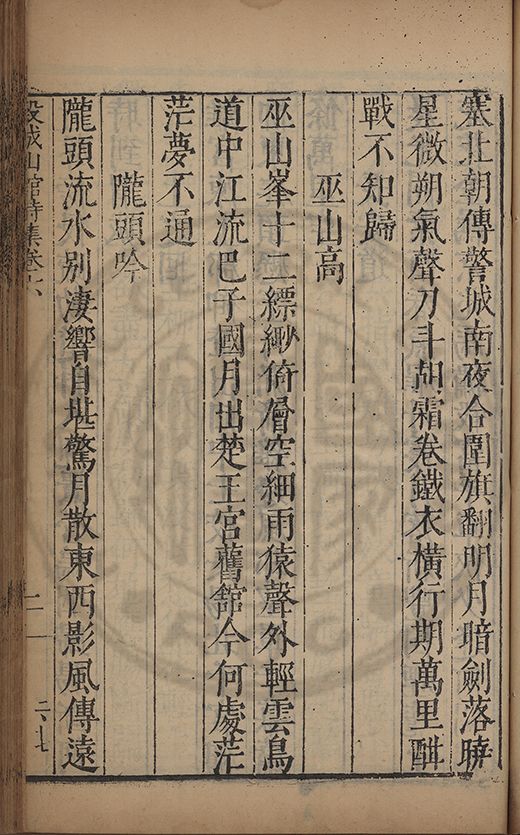 塞北朝傳警城南夜合圍旗翻明月暗劍落曉
星微朔氣聲刀斗胡霜卷鐵衣橫行期萬里酣
戰不知歸
巫山高
巫山峯十二縹緲倚層空細雨猿聲外輕雲鳥
道中江流巴子國月出楚王宮舊舘今何處茫
茫夢不通
隴頭吟
隴頭流水别淒響自堪驚月散東西影風傳遠
穀城山館詩集卷六
二